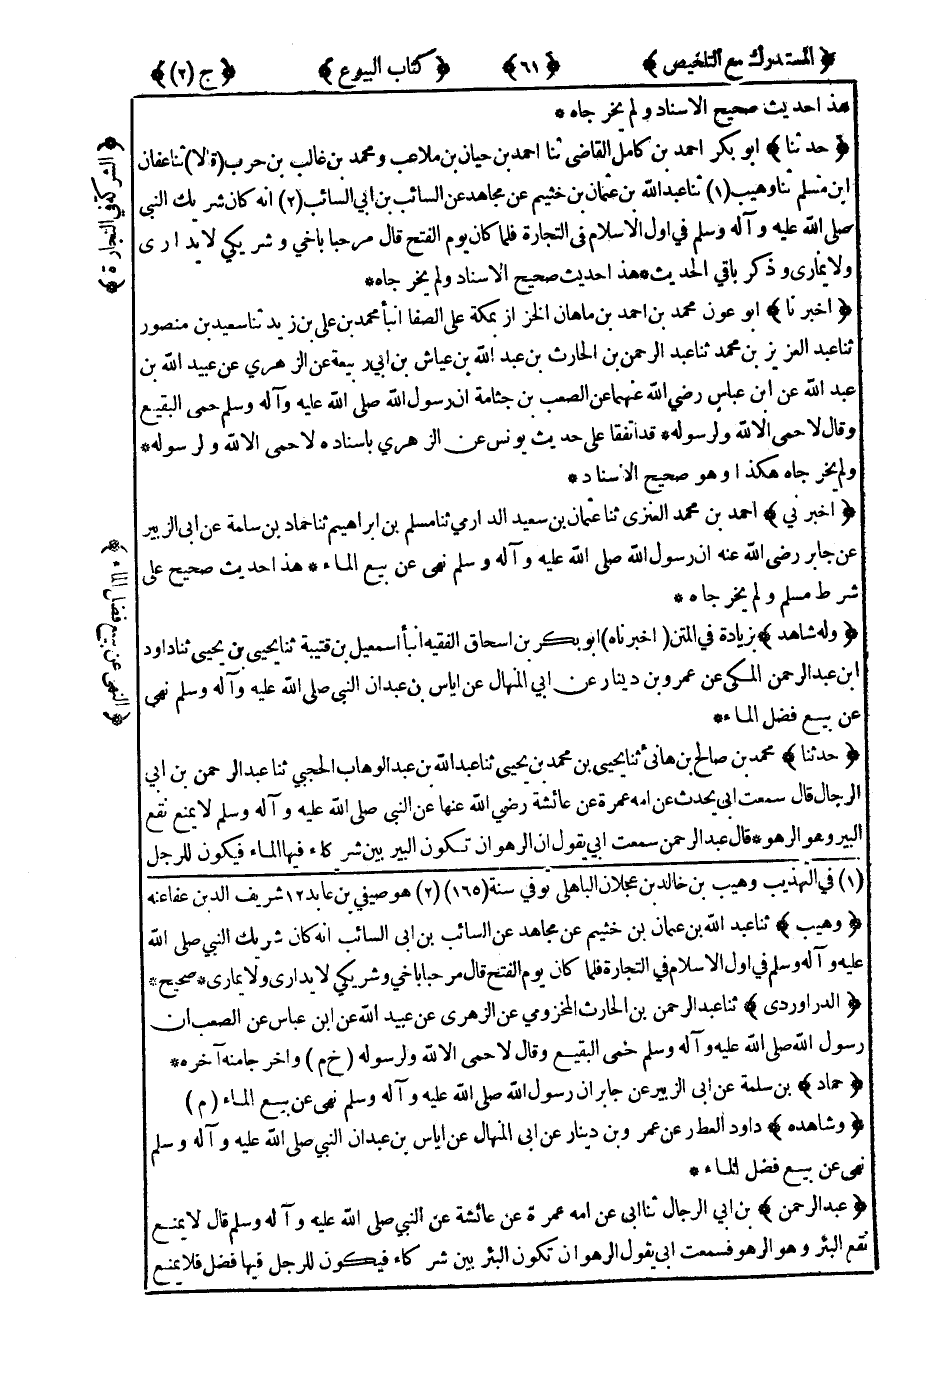 ﴿ المستدرك مع التلخيص ﴾ ﴿ ٦١ ﴾ ﴿ كتاب البيوع ﴾ ﴿ ج (٢) ﴾
هذا حديث صحيح الاسناد ولم يخرجاه *
﴿ حدثنا ﴾ ابو بكر احمد بن كامل القاضى ثنا احمد بن حيان بن ملاعب ومحمد بن غالب بن حرب (قالا) ثنا عفان
ابن مسلم ثنا وهيب (١) ثنا عبد الله بن عثمان بن خثيم عن مجاهد عن السائب بن ابى السائب (٢) انه كان شريك النبي
صلى الله عليه وآله وسلم في اول الاسلام في التجارة فلما كان يوم الفتح قال مرحبا باخي وشريكي لايدارى
ولايمارى وذكر باقي الحديث * هذا حديث صحيح الاسناد ولم يخرجاه *
﴿ اخبرنا ﴾ ابو عون محمد بن احمد بن ماهان الخزاز بمكة على الصفا انبأ محمد بن علي بن زيد ثنا سعيد بن منصور
ثنا عبد العزيز بن محمد ثنا عبد الرحمن بن الحارث بن عبد الله بن عياش بن ابي ربيعة عن الزهري عن عبيد الله بن
عبد الله عن ابن عباس رضي الله عنهما عن الصعب بن جثامة ان رسول الله صلى الله عليه وآله وسلم حمى البقيع
وقال لا حمى الا لله ولرسوله * قد اتفقا على حديث يونس عن الزهري باسناده لا حمى الا لله ولرسوله *
ولم يخرجاه هكذا وهو صحيح الاسناد *
﴿ اخبرني ﴾ احمد بن محمد العنزى ثنا عثمان بن سعيد الدارمي ثنا مسلم بن ابراهيم ثنا حماد بن سلمة عن ابى الزبير
عن جابر رضى الله عنه ان رسول الله صلى الله عليه وآله وسلم نهى عن بيع الماء * هذا حديث صحيح على
شرط مسلم ولم يخرجاه *
﴿ وله شاهد ﴾ بزيادة في المتن (اخبرناه) ابو بكر بن اسحاق الفقيه انبأ اسمعيل بن قتيبة ثنا يحيى بن يحيى ثنا داود
ابن عبد الرحمن المكى عن عمرو بن دينار عن ابي المنهال عن اياس بن عبدان النبي صلى الله عليه وآله وسلم نهي
عن بيع فضل الماء *
﴿ حدثنا ﴾ محمد بن صالح بن هانئ ثنا يحيى بن محمد بن يحيى ثنا عبد الله بن عبد الوهاب الحجبي ثنا عبد الرحمن بن ابي
الرجال قال سمعت ابى يحدث عن امه عمرة عن عائشة رضي الله عنها عن النبي صلى الله عليه وآله وسلم لا يمنع نقع
البير وهو الرهو * قال عبد الرحمن سمعت ابي يقول ان الرهو ان تكون البير بين شركاء فيها الماء فيكون للرجل
(١) في التهذيب وهيب بن خالد بن عجلان الباهلي توفي سنة (١٦٥) (٢) هو صيفي بن عابد ١٢ شريف الدين عفاعنه
﴿ وهيب ﴾ ثنا عبد الله بن عثمان بن خثيم عن مجاهد عن السائب بن ابى السائب انه كان شريك النبي صلى الله
عليه وآله وسلم في اول الاسلام في التجارة فلما كان يوم الفتح قال مرحبا باخي وشريكي لايدارى ولا يمارى * صحيح *
﴿ الدراوردى ﴾ ثنا عبد الرحمن بن الحارث المخزومي عن الزهرى عن عبيد الله عن ابن عباس عن الصعب ان
رسول الله صلى الله عليه وآله وسلم حمى البقيع وقال لا حمى الا لله ولرسوله (خ م) واخرجا منه آخره *
﴿ حماد ﴾ بن سلمة عن ابى الزبير عن جابر ان رسول الله صلى الله عليه وآله وسلم نهى عن بيع الماء (م)
﴿ وشاهده ﴾ داود العطار عن عمرو بن دينار عن ابى المنهال عن اياس بن عبدان النبي صلى الله عليه وآله وسلم
نهى عن بيع فضل الماء *
﴿ عبد الرحمن ﴾ بن ابي الرجال ثنا ابى عن امه عمرة عن عائشة عن النبي صلى الله عليه وآله وسلم قال لا يمنع
نقع البئر وهو الرهو فسمعت ابي يقول الرهو ان تكون البئر بين شركاء فيكون للرجل فيها فضل فلا يمنع
﴿ الشركة في التجارة ﴾
﴿ النهى عن بيع فضل الماء ﴾